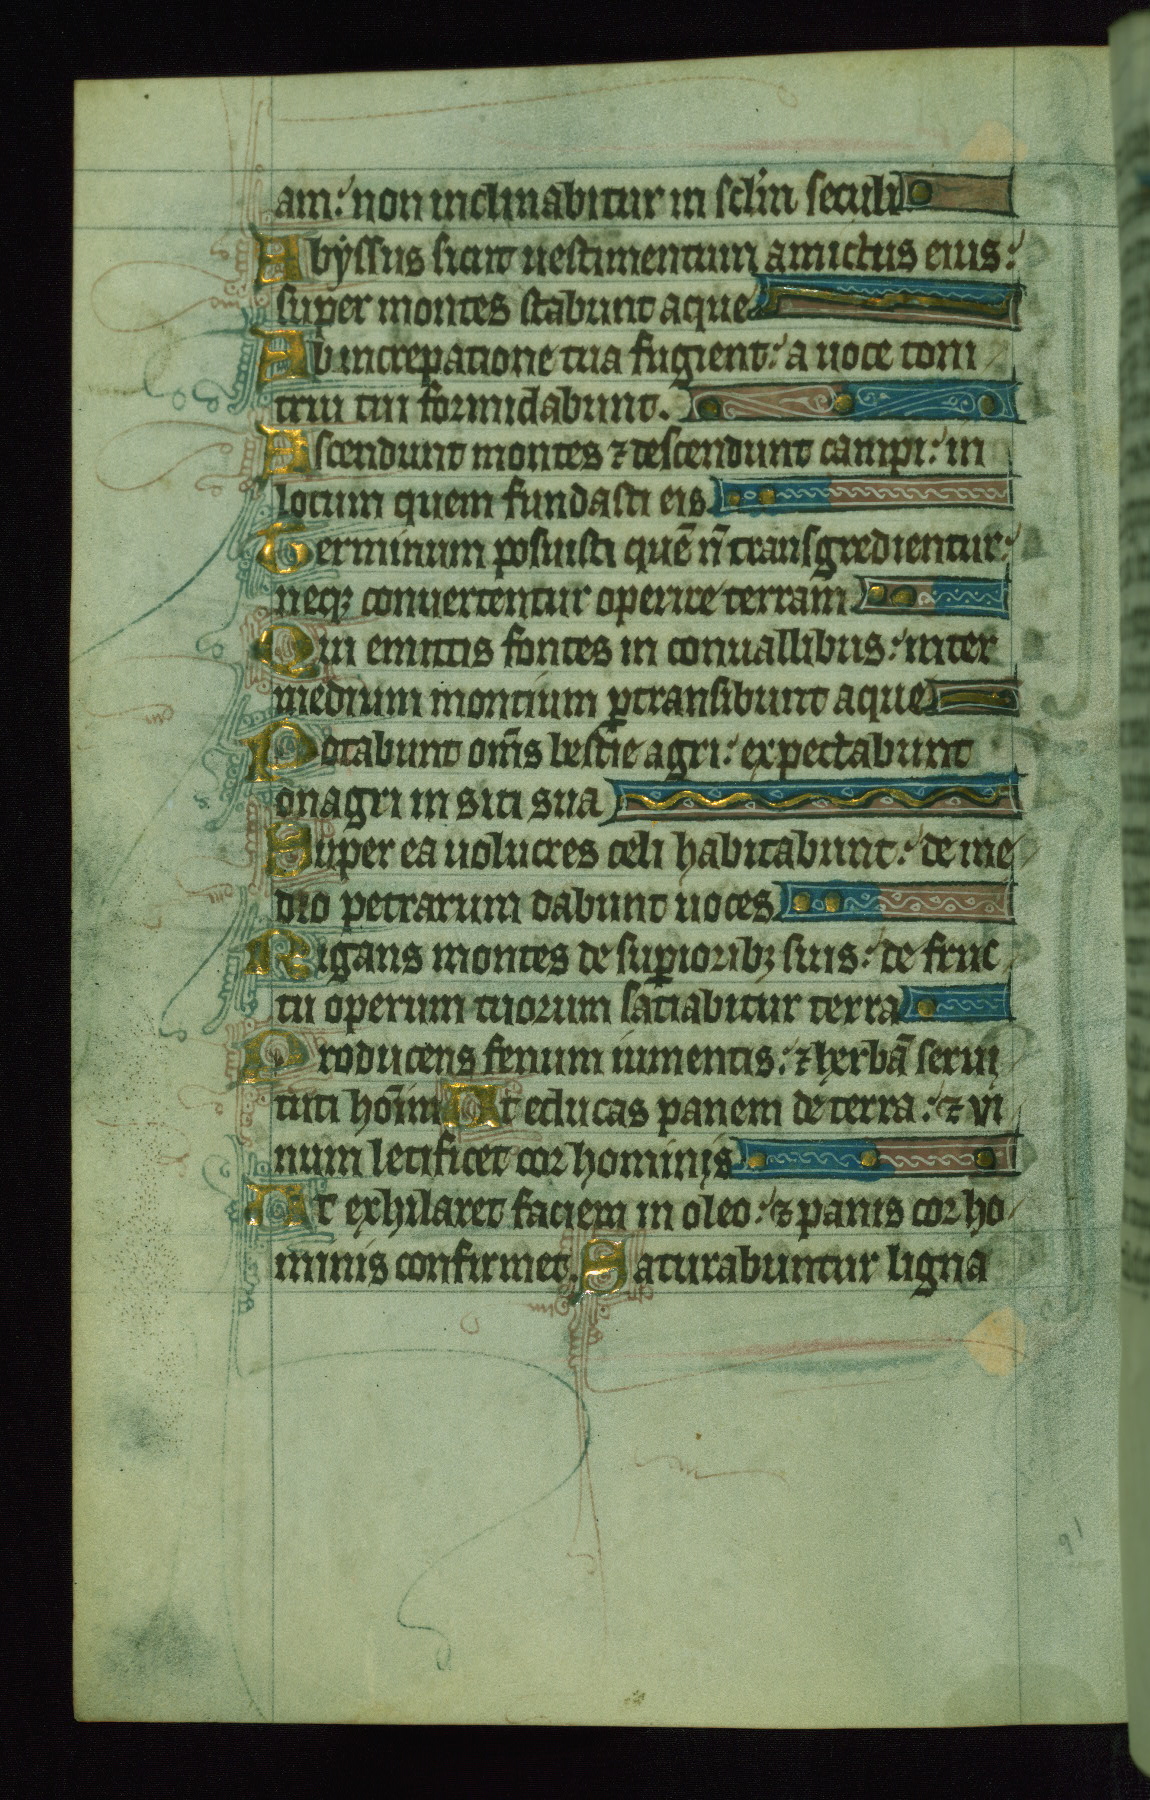 am: non inclinabitur in sclm seculi
Abyssus sicut uestimentum amictus eius:
super montes stabunt aque
Ab increpatione tua fugient: a uoce toni
trui tui formidabunt.
Ascendunt montes ⁊ descendunt campi: in
locum quem fundasti eis
Terminum posuisti quē n̄ transgredientur:
neqꝫ conuertentur operire terram
Qui emittis fontes in conuallibus: inter
medium montium ꝑtransibunt aque
Potabunt om̄s bestie agri: expectabunt
onagri in siti sua
Super ea uolucres celi habitabunt: de me
dio petrarum dabunt uoces
Rigans montes de suꝑioribꝫ suis: de fruc
tu operum tuorum satiabitur terra
Producens fenum iumentis: ⁊ herbā serui
tuti hoīm Ut educas panem de terra: ⁊ vi
num letificet cor hominis
Ut exhilaret faciem in oleo: ⁊ panis cor ho
minis confirmet. Saturabuntur ligna